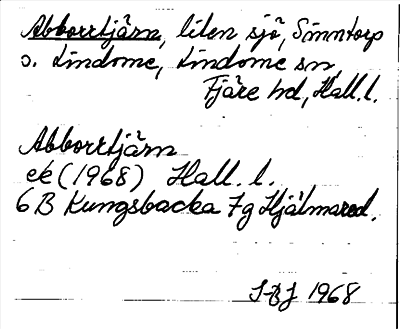 Abborrtjärn, liten sjö, Sinntorp
o. Lindome, Lindome sn,
Fjäre hd, Hall. l.
Abborrtjärn
ek (1968) Hall. l.
6 B Kungsbacka 7g Hjälmared.
1968